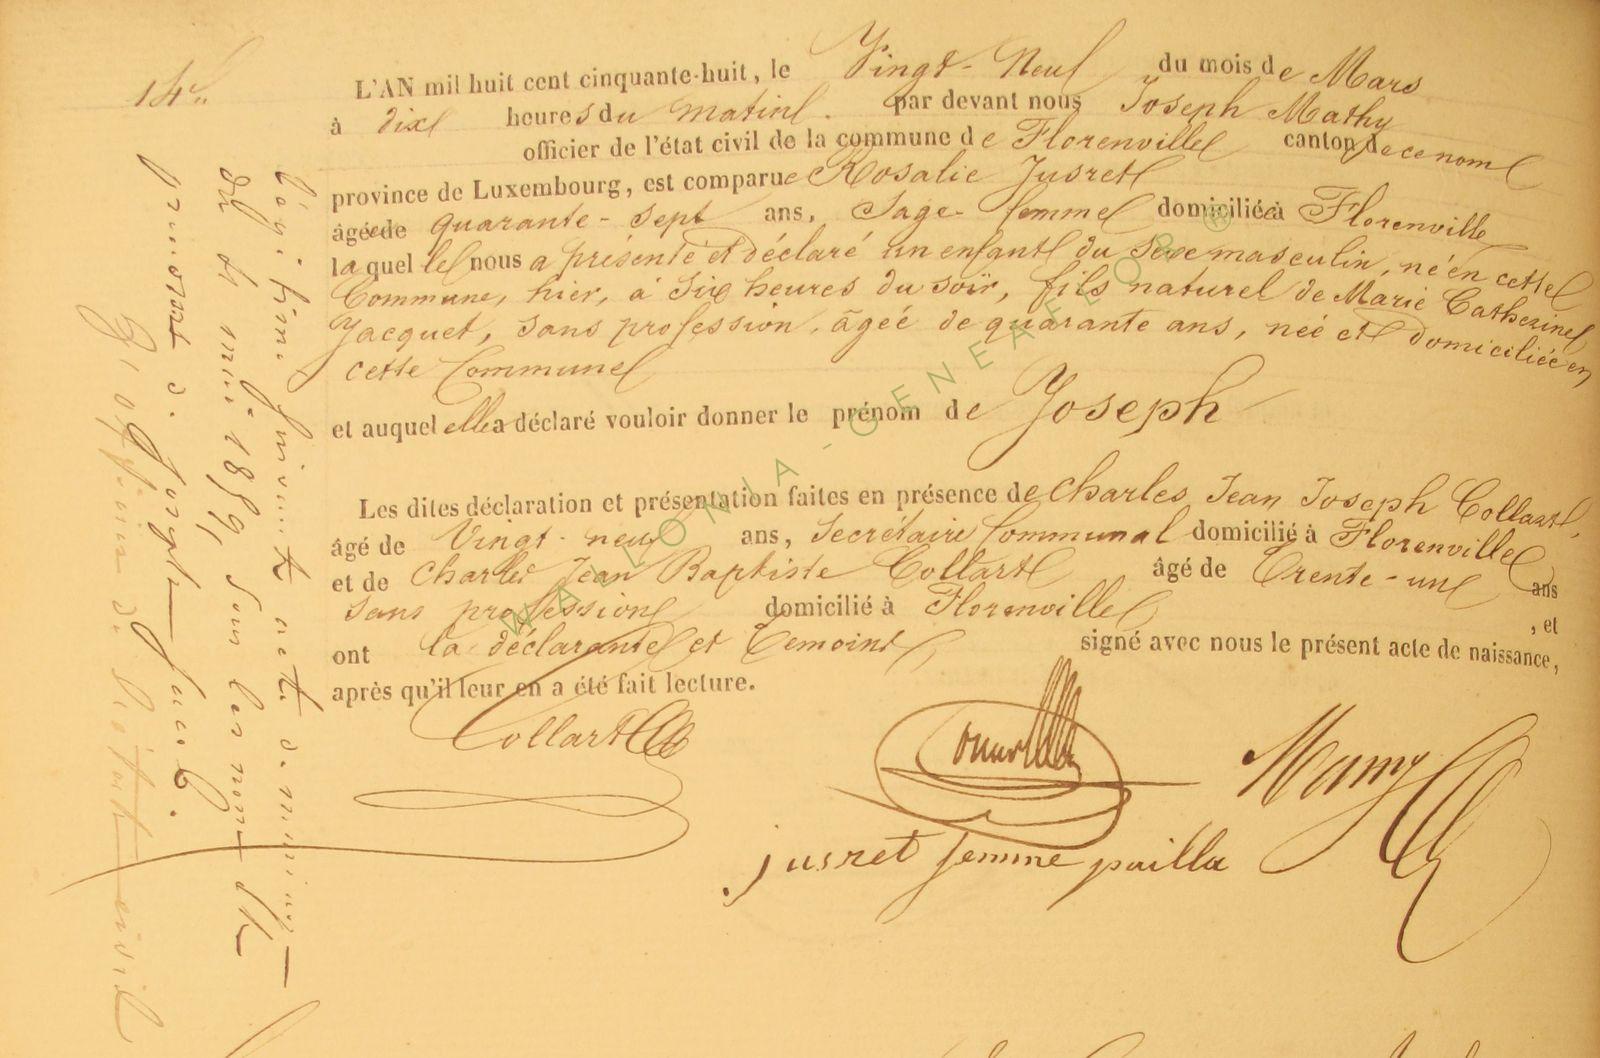 14
L'AN mil huit cent cinquante-huit, le Vingt-Neuf du mois de Mars
à dix heures du matin. par devant nous Joseph Mathy
officier de l'état civil de la commune de Florenville canton de ce nom
province de Luxembourg, est comparue Rosalie Jusret
âgée de quarante-sept ans, Sage-femme domiciliée à Florenville
laquelle nous a présenté et déclaré un enfant du sexe masculin, né en cette
Commune, hier, à six heures du soir, fils naturel de Marie Catherine
Jacquet, sans profession, âgée de quarante ans, née et domiciliée en
cette Commune
et auquel elle a déclaré vouloir donner le prénom de Joseph
Les dites déclaration et présentation faites en présence de Charles Jean Joseph Collart,
âgé de Vingt-neuf ans, Secrétaire Communal domicilié à Florenville
et de Charles Jean Baptiste Collart âgé de Trente-un ans
sans profession domicilié à Florenville, et
ont la déclarante et témoins, signé avec nous le présent acte de naissance,
après qu'il leur en a été fait lecture.
Collart
jusret femme pailla
du mai 1859, sous les noms de
L'officier de l'état civil
WALLONIA-GENEAFLOR®